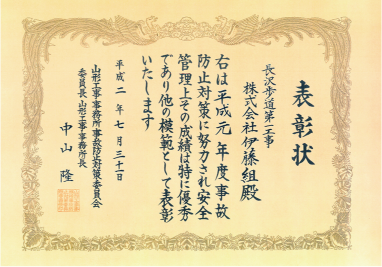 表彰状
長沢歩道第二工事
株式会社伊藤組殿
右は平成元年度事故
防止対策に努力され安全
管理上その成績は特に優秀
であり他の模範として表彰
いたします
平成二年七月三十一日
山形工事事務所事故防止対策委員会
委員長 山形工事事務所長
中山隆